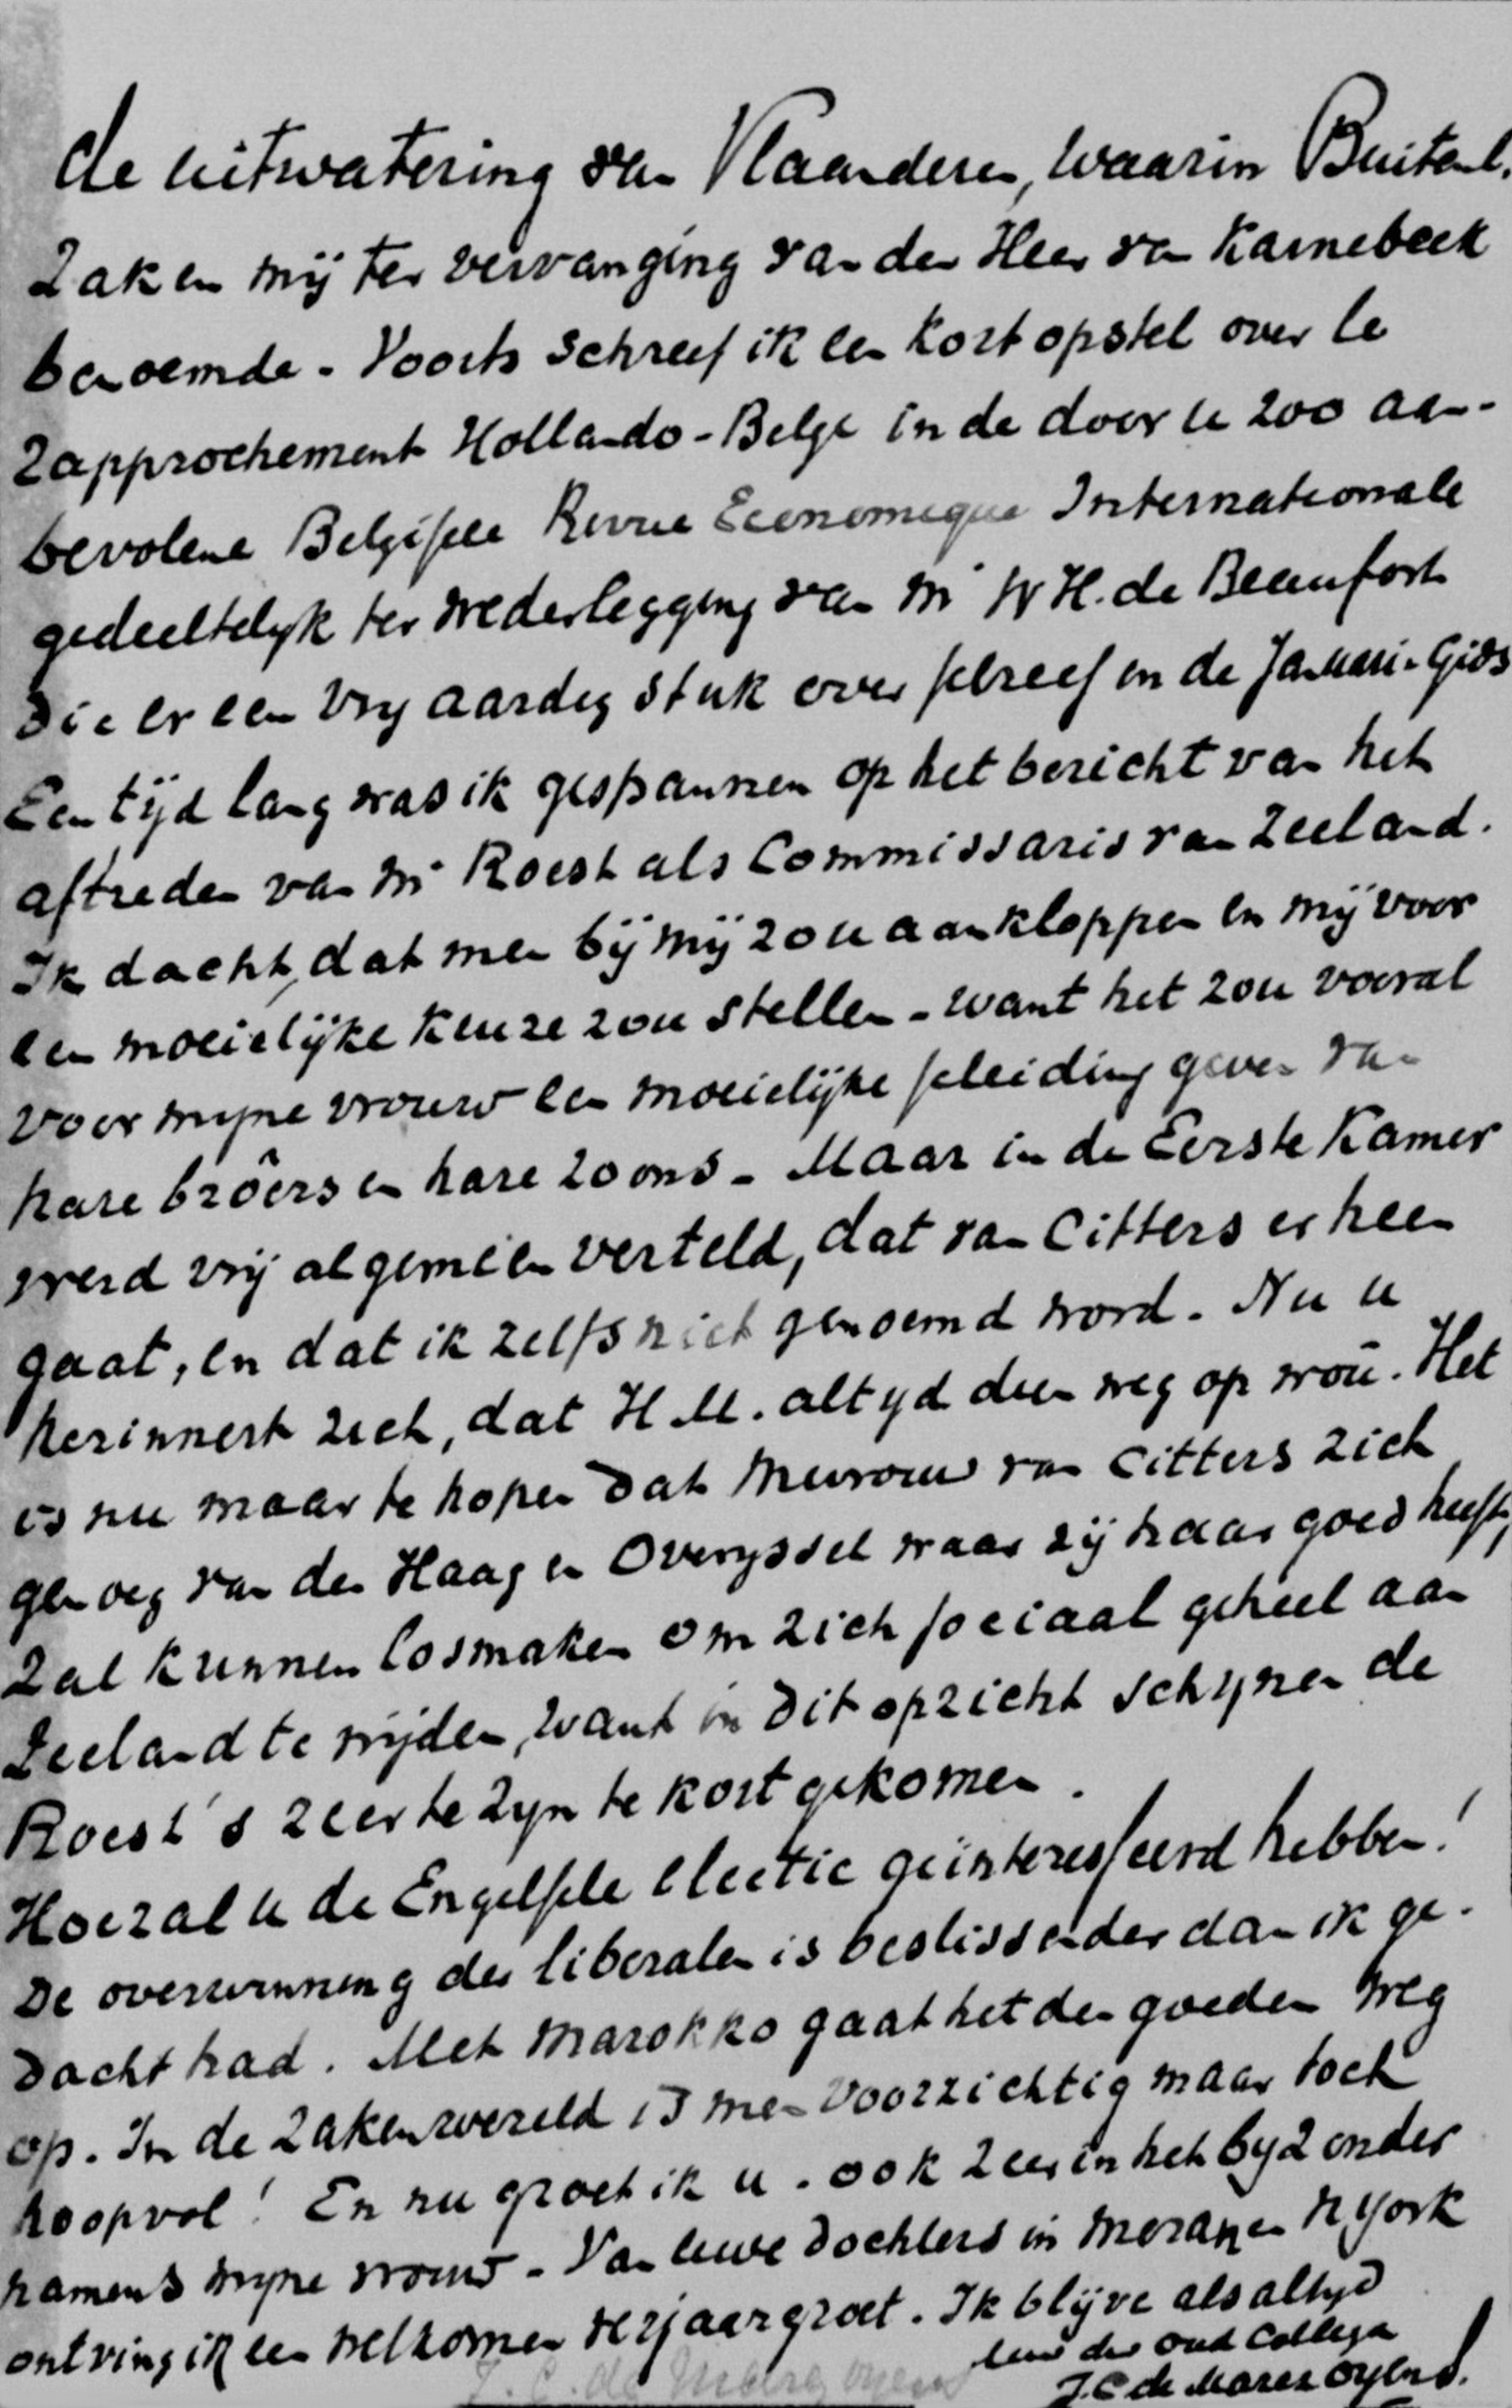 de uitwatering van Vlaanderen, waarin Buitenl.
Zaken mij ter vervanging van den Heer van Karnebeek
benoemde. Voorts schreef ik een kort opstel over le
rapprochement Hollando-Belge in de door u 200 aan-
bevolene Belgische Revue Economique Internationale
gedeeltelyk ter wederlegging van Mr W H. de Beaufort
die er een vry aardig stuk over schreef in de Januari-Gids
Een tijd lang was ik gespannen op het bericht van het
aftreden van Mr Roest als Commissaris van Zeeland.
Ik dacht, dat men bij mij zou aankloppen en mij voor
een moeielijke keuze zou stellen - want het zou vooral
voor myne vrouw een moeielijke scheiding geven van
hare broêrs en hare zoons - Maar in de Eerste Kamer
werd vrij algemeen verteld, dat van Citters er heen
gaat, en dat ik zelfs niet genoemd word. Nu u
herinnert zich, dat H.M. altyd dien weg op wou. Het
is nu maar te hopen dat Mevrouw van Citters zich
genoeg van den Haag en Overyssel waar zij haar goed heeft,
zal kunnen losmaken om zich sociaal geheel aan
Zeeland te wijden, want in dit opzicht schynen de
Roest's zeer te zyn te kort gekomen.
Hoe zal u de Engelsche electie geïnteresseerd hebben!
De overwinning der liberalen is beslissender dan ik ge-
dacht had. Met Marokko gaat het den goeden weg
op. In de zakenwereld is men voorzichtig maar toch
hoopvol! En nu groet ik u. ook zeer in het byzonder
namens myne vrouw - Van uwe dochters in en N York
ontving ik een welkomen verjaargroet. Ik blijve als altyd
uw oud Collega
J.C de Marez Oyens.